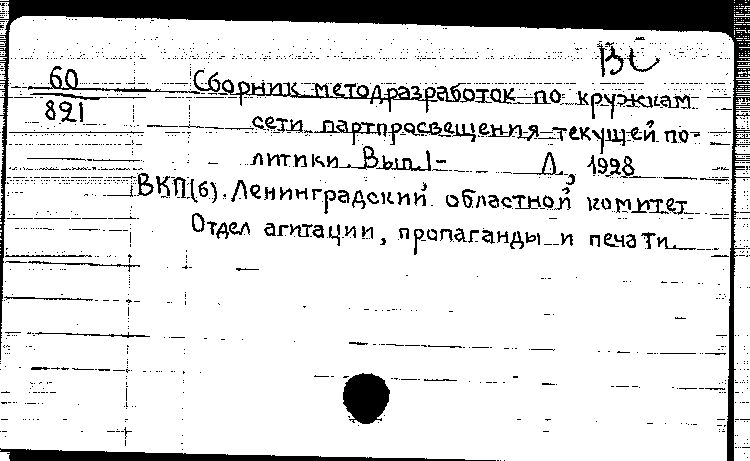 ВС
60
821
Сборник методразработок по кружкам
сети партпросвещения текущей по-
литики. Вып. 1- Л., 1928
ВКП(б). Ленинградский областной комитет
Отдел агитации, пропаганды и печати.